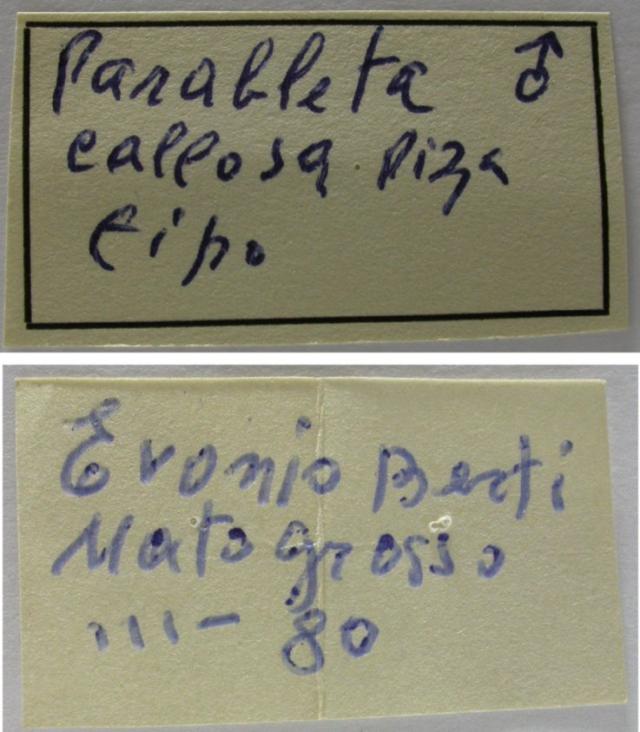 Parableta ♂
callosa Piza
tipo
Evonio Berti
Mato grosso
III-80